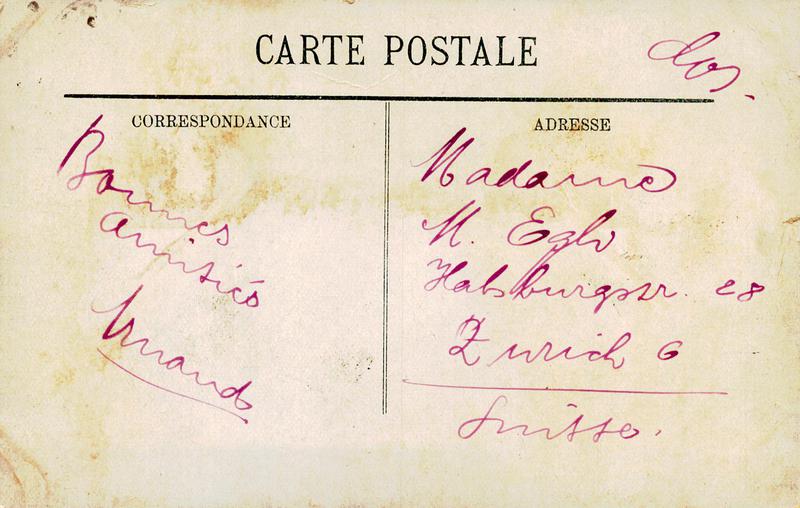 CARTE POSTALE
CORRESPONDANCE
Bonnes
amitiés
Armand
ADRESSE
Madame
M. Egli
Habsburgstr. 28
Zurich 6
Suisse.